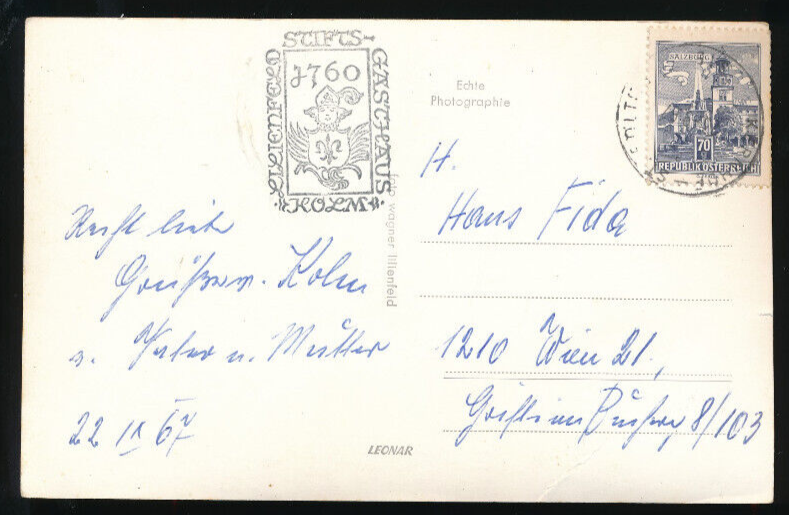 STIFTS-
GASTHAUS
LILIENFELD
1760
KOLM
Echte
Photographie
H.
Hans Fida
1210 Wien 21.,
8/103
Recht liebe
Grüße v. Kolm
s. Vater u. Mutter
22 IX 67
foto wagner lilienfeld
LEONAR
SALZBURG
70
REPUBLIK ÖSTERREICH